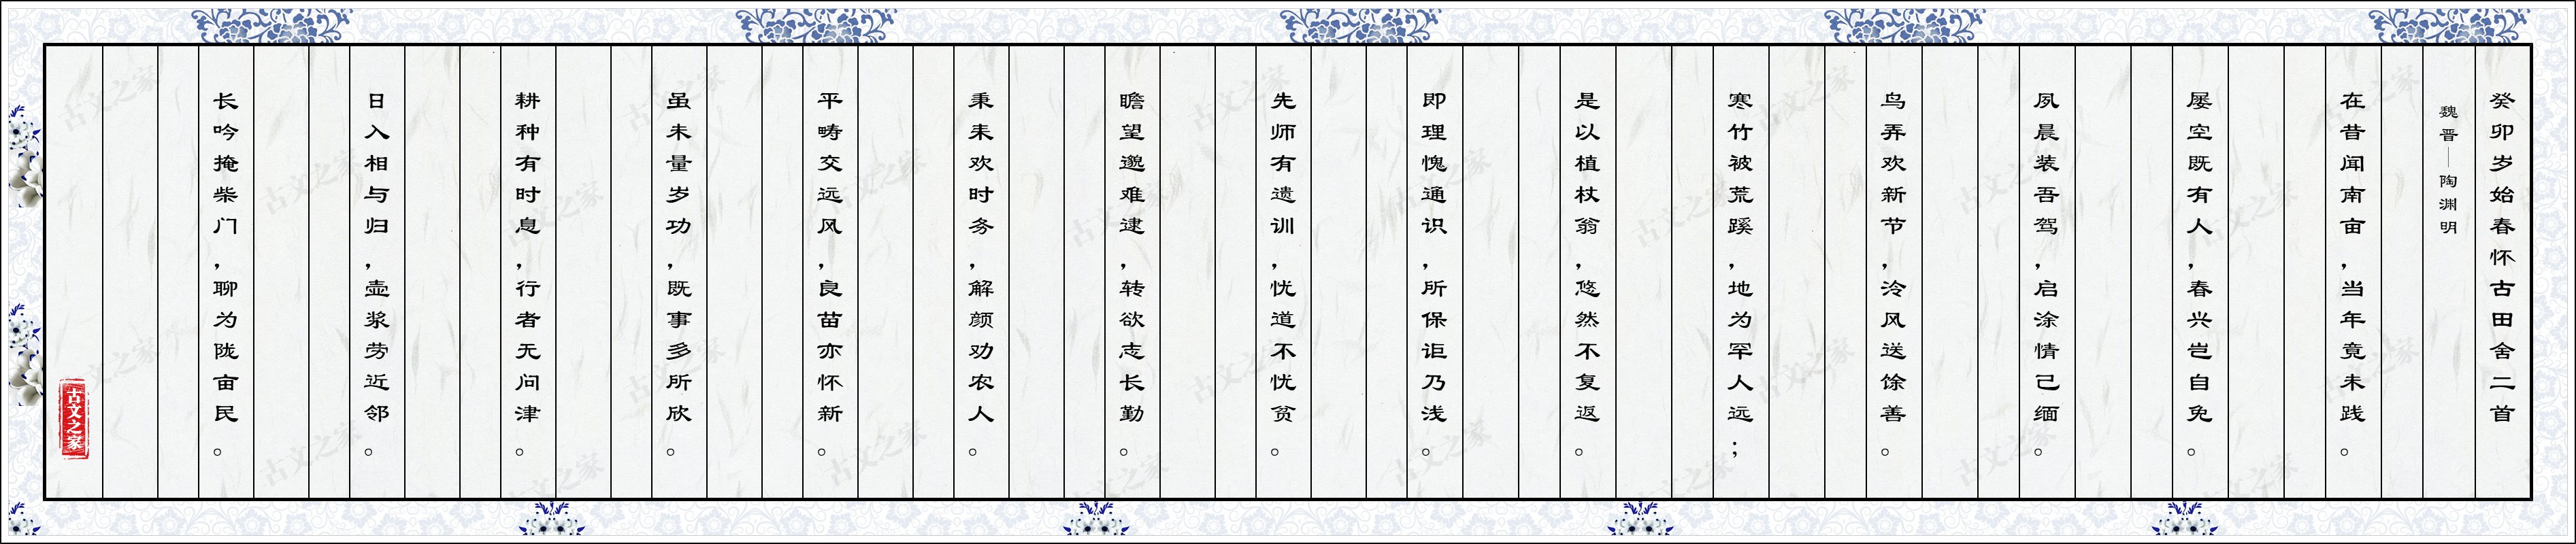 癸卯岁始春怀古田舍二首
魏晋—陶渊明
在昔闻南亩，当年竟未践。
屡空既有人，春兴岂自免。
夙晨装吾驾，启涂情己缅。
鸟弄欢新节，泠风送馀善。
寒竹被荒蹊，地为罕人远；
是以植杖翁，悠然不复返。
即理愧通识，所保讵乃浅。
先师有遗训，忧道不忧贫。
瞻望邈难逮，转欲志长勤。
秉耒欢时务，解颜劝农人。
平畴交远风，良苗亦怀新。
虽未量岁功，既事多所欣。
耕种有时息，行者无问津。
日入相与归，壶浆劳近邻。
长吟掩柴门，聊为陇亩民。
古文之家